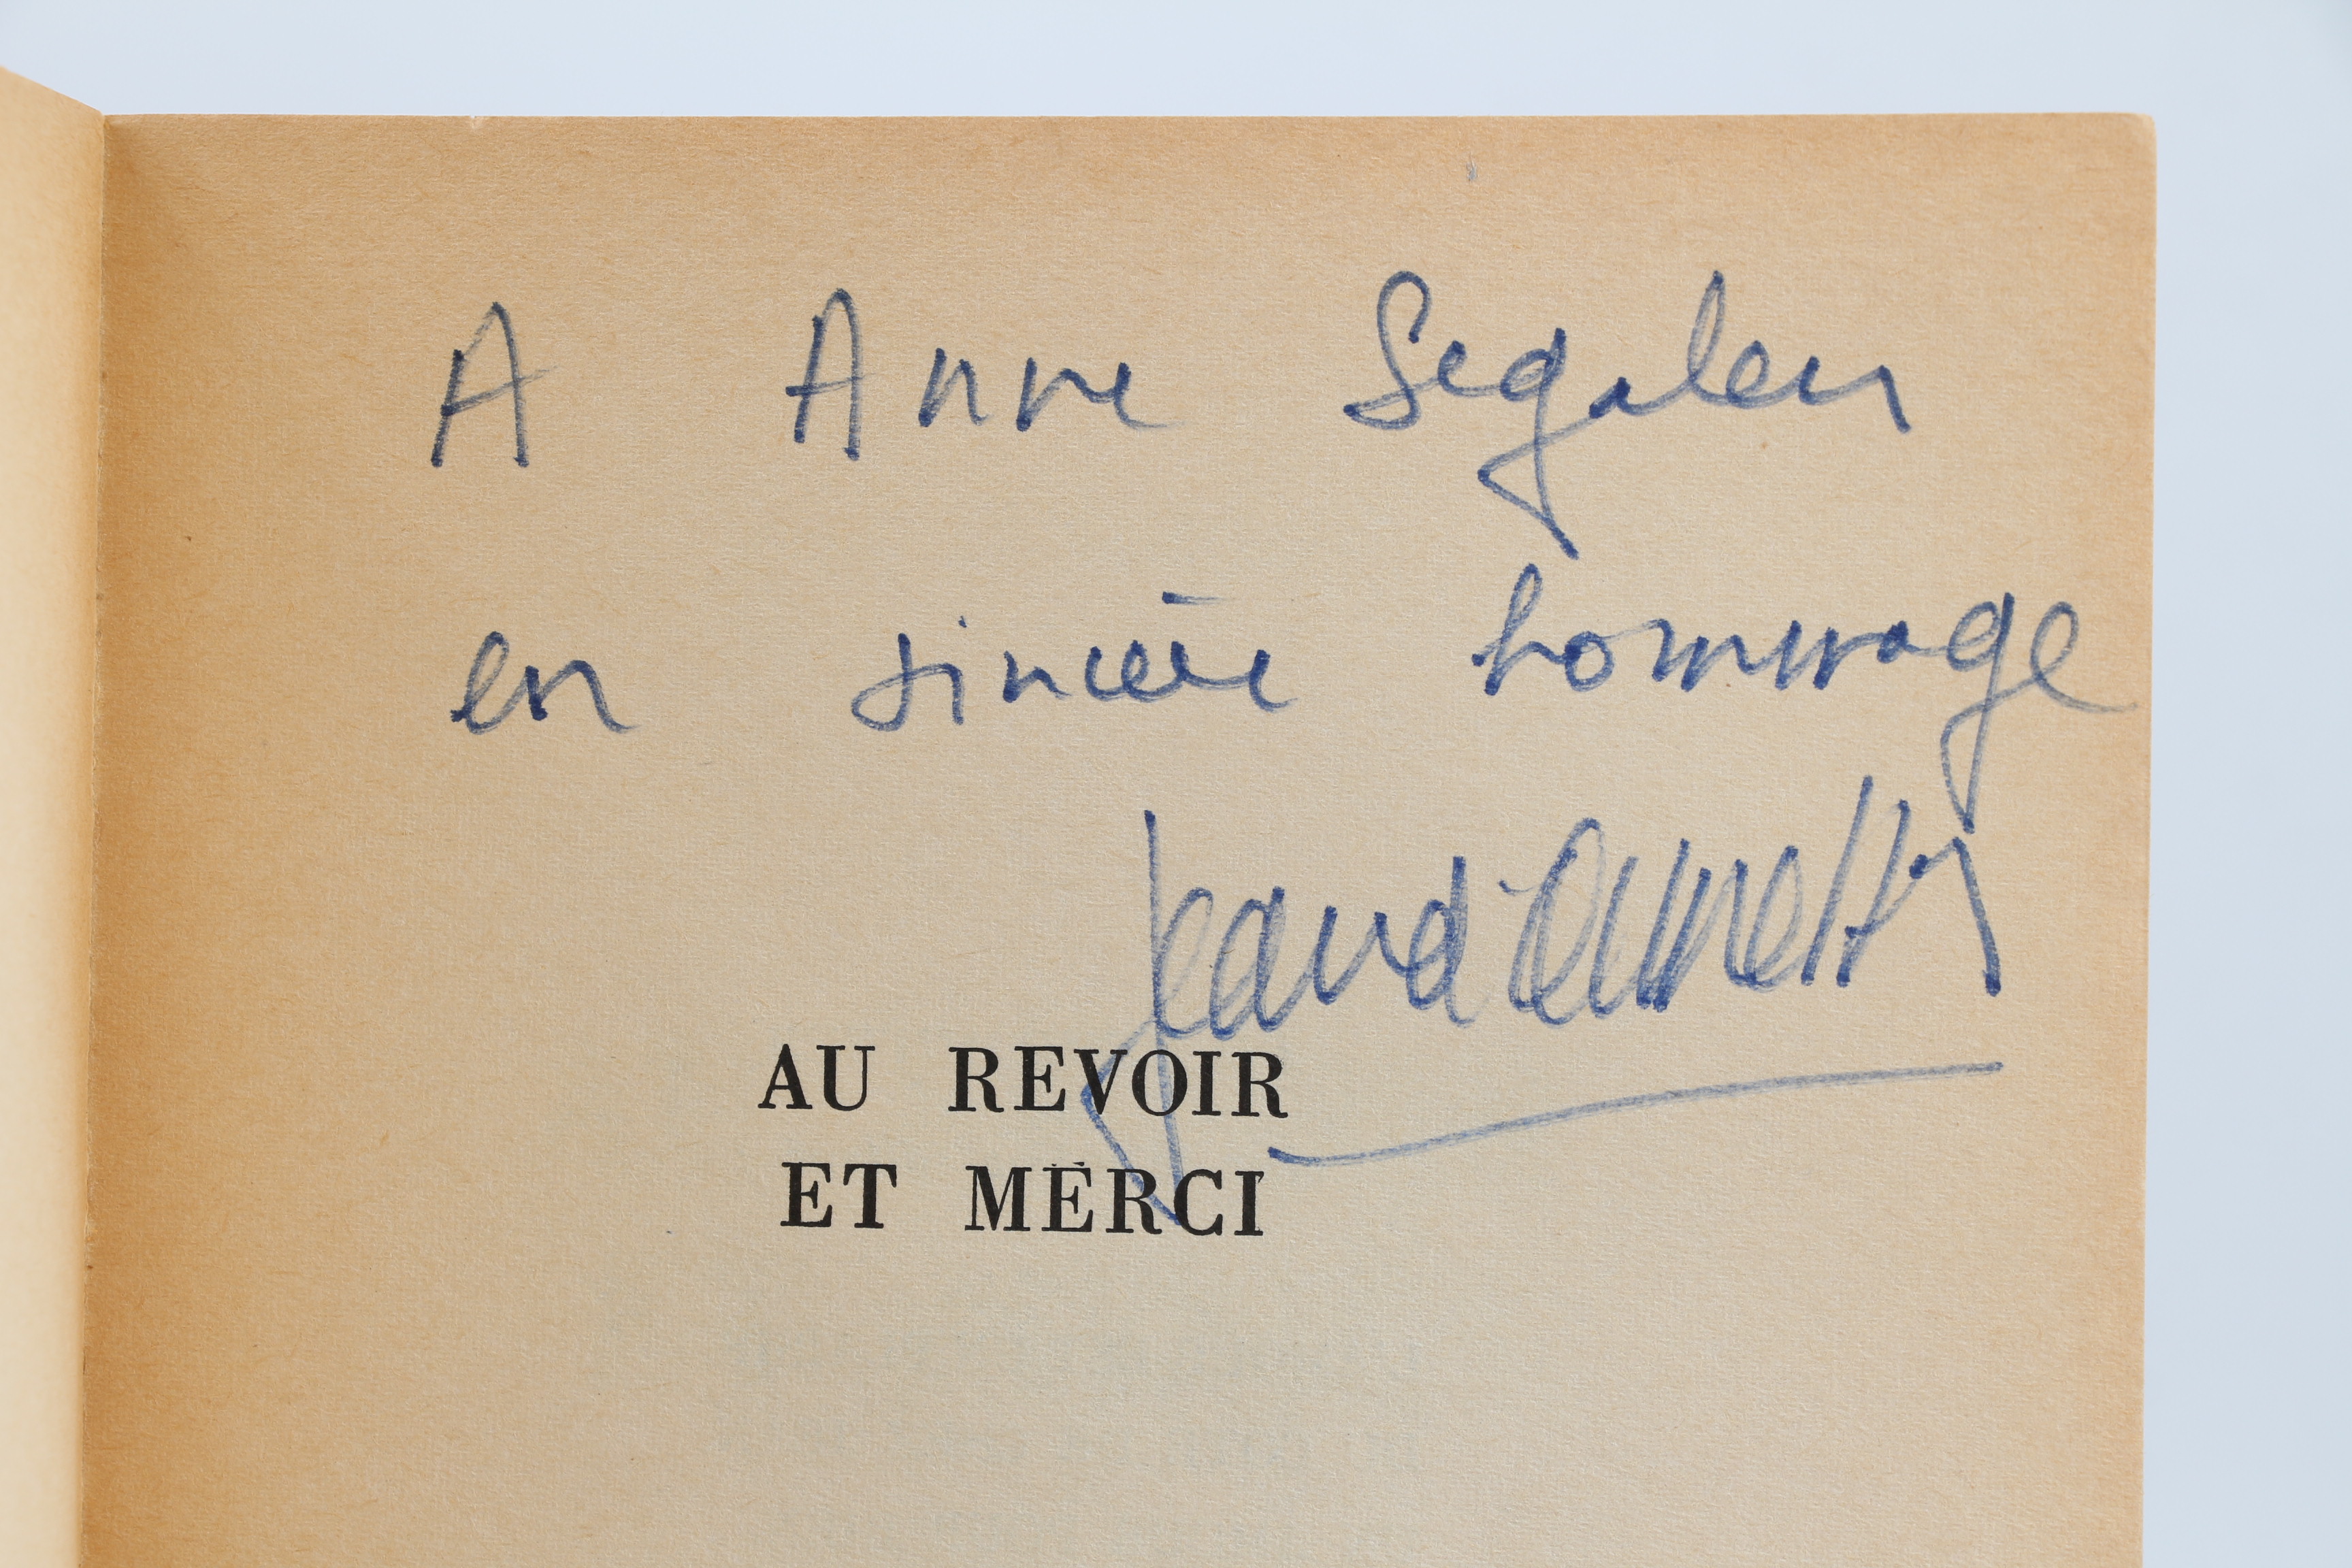 A Anne Segalen
en sincère hommage
Jean d'Ormesson
AU REVOIR
ET MERCI